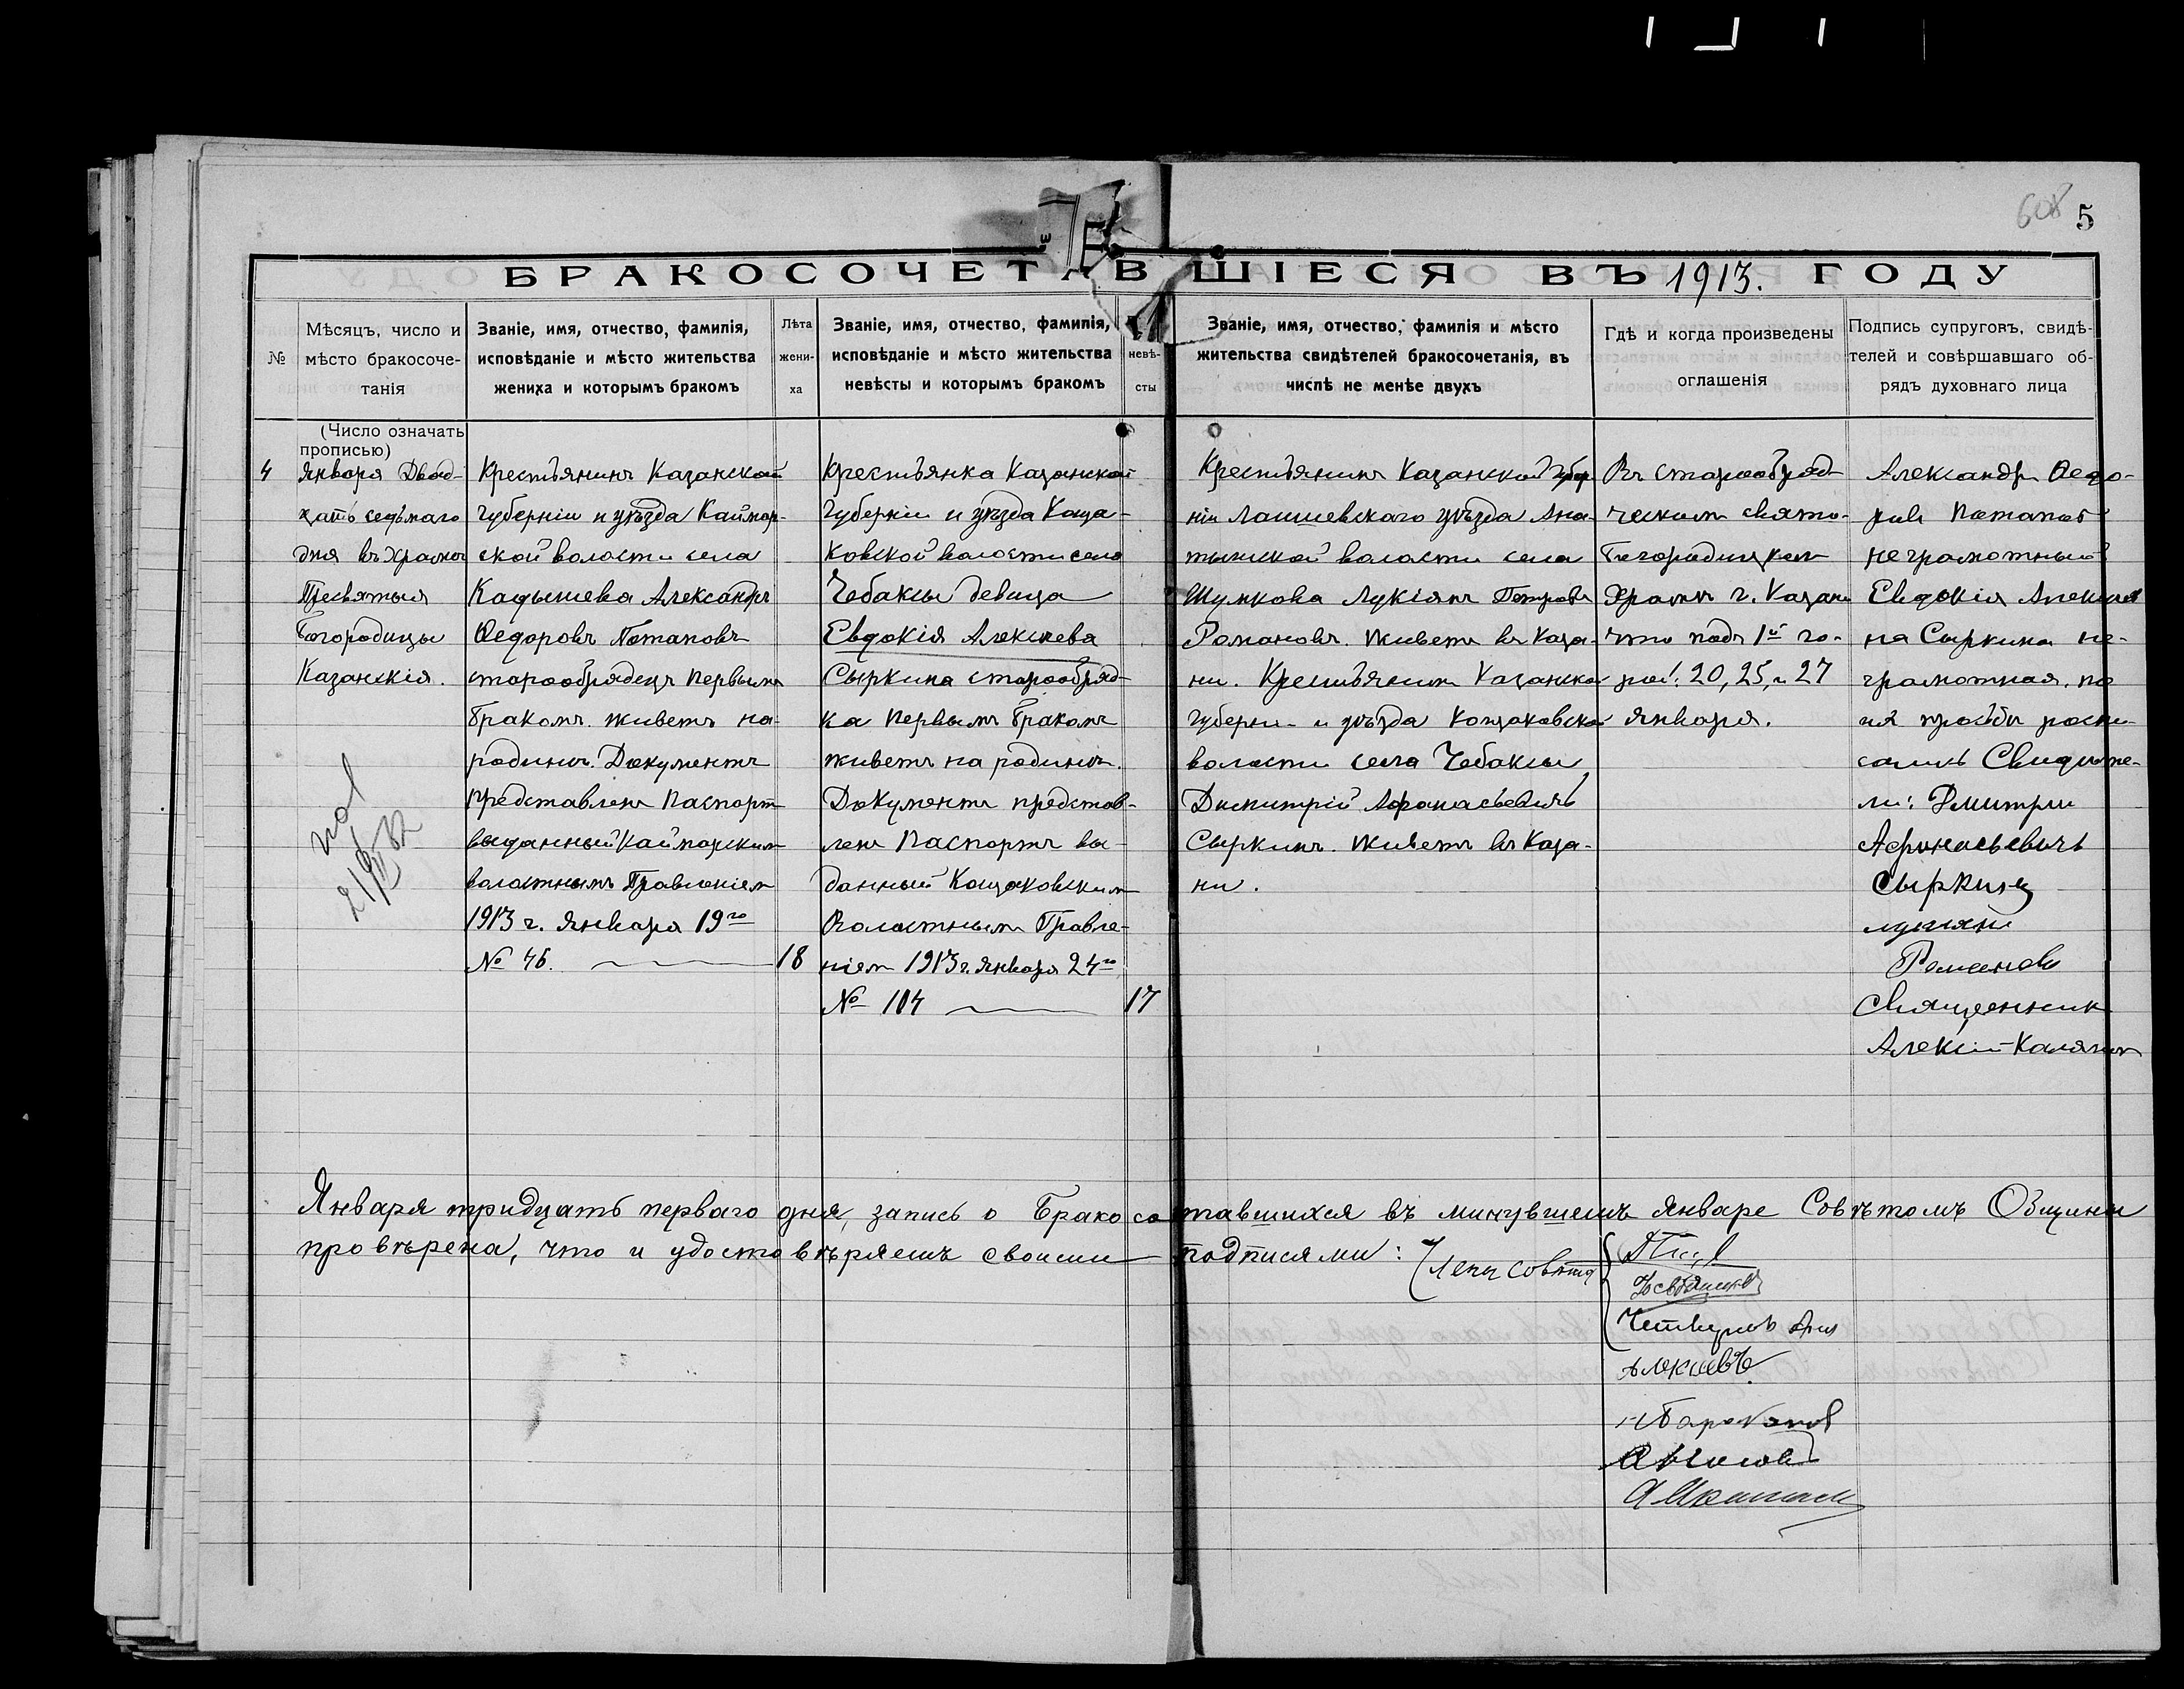 608 5
БРАКОСОЧЕТАВШІЕСЯ ВЪ 1913. ГОДУ
№
Мѣсяцъ, число и
мѣсто бракосоче-
танія
Званіе, имя, отчество, фамилія,
исповѣданіе и мѣсто жительства
жениха и которымъ бракомъ
Лѣта
жени-
ха
Званіе, имя, отчество, фамилія,
исповѣданіе и мѣсто жительства
невѣсты и которымъ бракомъ
невѣ-
сты
Званіе, имя, отчество, фамилія и мѣсто
жительства свидѣтелей бракосочетанія, въ
числѣ не менѣе двухъ
Гдѣ и когда произведены
оглашенія
Подпись супруговъ, свидѣ-
телей и совѣршавшаго об-
рядъ духовнаго лица
(Число означать
прописью)
4
Января Двад-
цать седьмаго
дня въ храмѣ
Пресвятыя
Богородицы
Казанскія.
Крестьянинъ Казанской
Губерніи и уѣзда Каймар-
ской волости села
Кадышева Александръ
Ѳедоровъ Потаповъ
старообрядецъ первымъ
бракомъ. живетъ на-
родинѣ. Документъ
представленъ Паспортъ
выданный Каймарскимъ
волостнымъ Правленіем
1913 г. Января 19го
№ 46.
18
Крестьянка Казанской
Губерніи и уѣзда Каща-
ковской волости село
Чебаксы девица
Евдокія Алексеева
Сыркина старообряд-
ка первымъ бракомъ
живетъ на родинѣ.
Документъ представ-
ленъ Паспортъ вы-
данный Кощаковским
Волостным Правле-
ніем 1913 г. Января 24го
№ 104
17
Крестьянинъ Казанской Губер-
ніи Лаишевскаго уѣзда Ана-
тышской волости села
Шумкова Лукіянъ Петровъ
Романовъ. живетъ въ Каза-
ни. Крестьянинъ Казанской
Губерни и уѣзда Кощаковской
волости села Чебаксы
Димитрій Афанасьевичъ
Сыркинъ. живетъ въ Каза-
ни.
Въ старообряд-
ческомъ свято-
Богородицком
Храмѣ г. Казани
что подъ 1й го-
рой. 20, 25, и 27
января.
Александръ Ѳедо-
ровъ Потаповъ
неграмотный
Евдокія Алексеев
на Сыркина не-
грамотная. по
ихъ просьбѣ роспи-
сались Свидѣте-
ли: Дмитри
Афонасьевичъ
Сыркинъ
лукиянъ
Романовъ
Священник
Алексій Калягин
21/VI 82
Января тридцать перваго дня, запись о Бракосотавшихся въ минувшемъ январе Совѣтомъ Общины
провѣрена, что и удостовѣряемъ своими подписями: Члены совѣта
Четвергов
Алексіевъ.